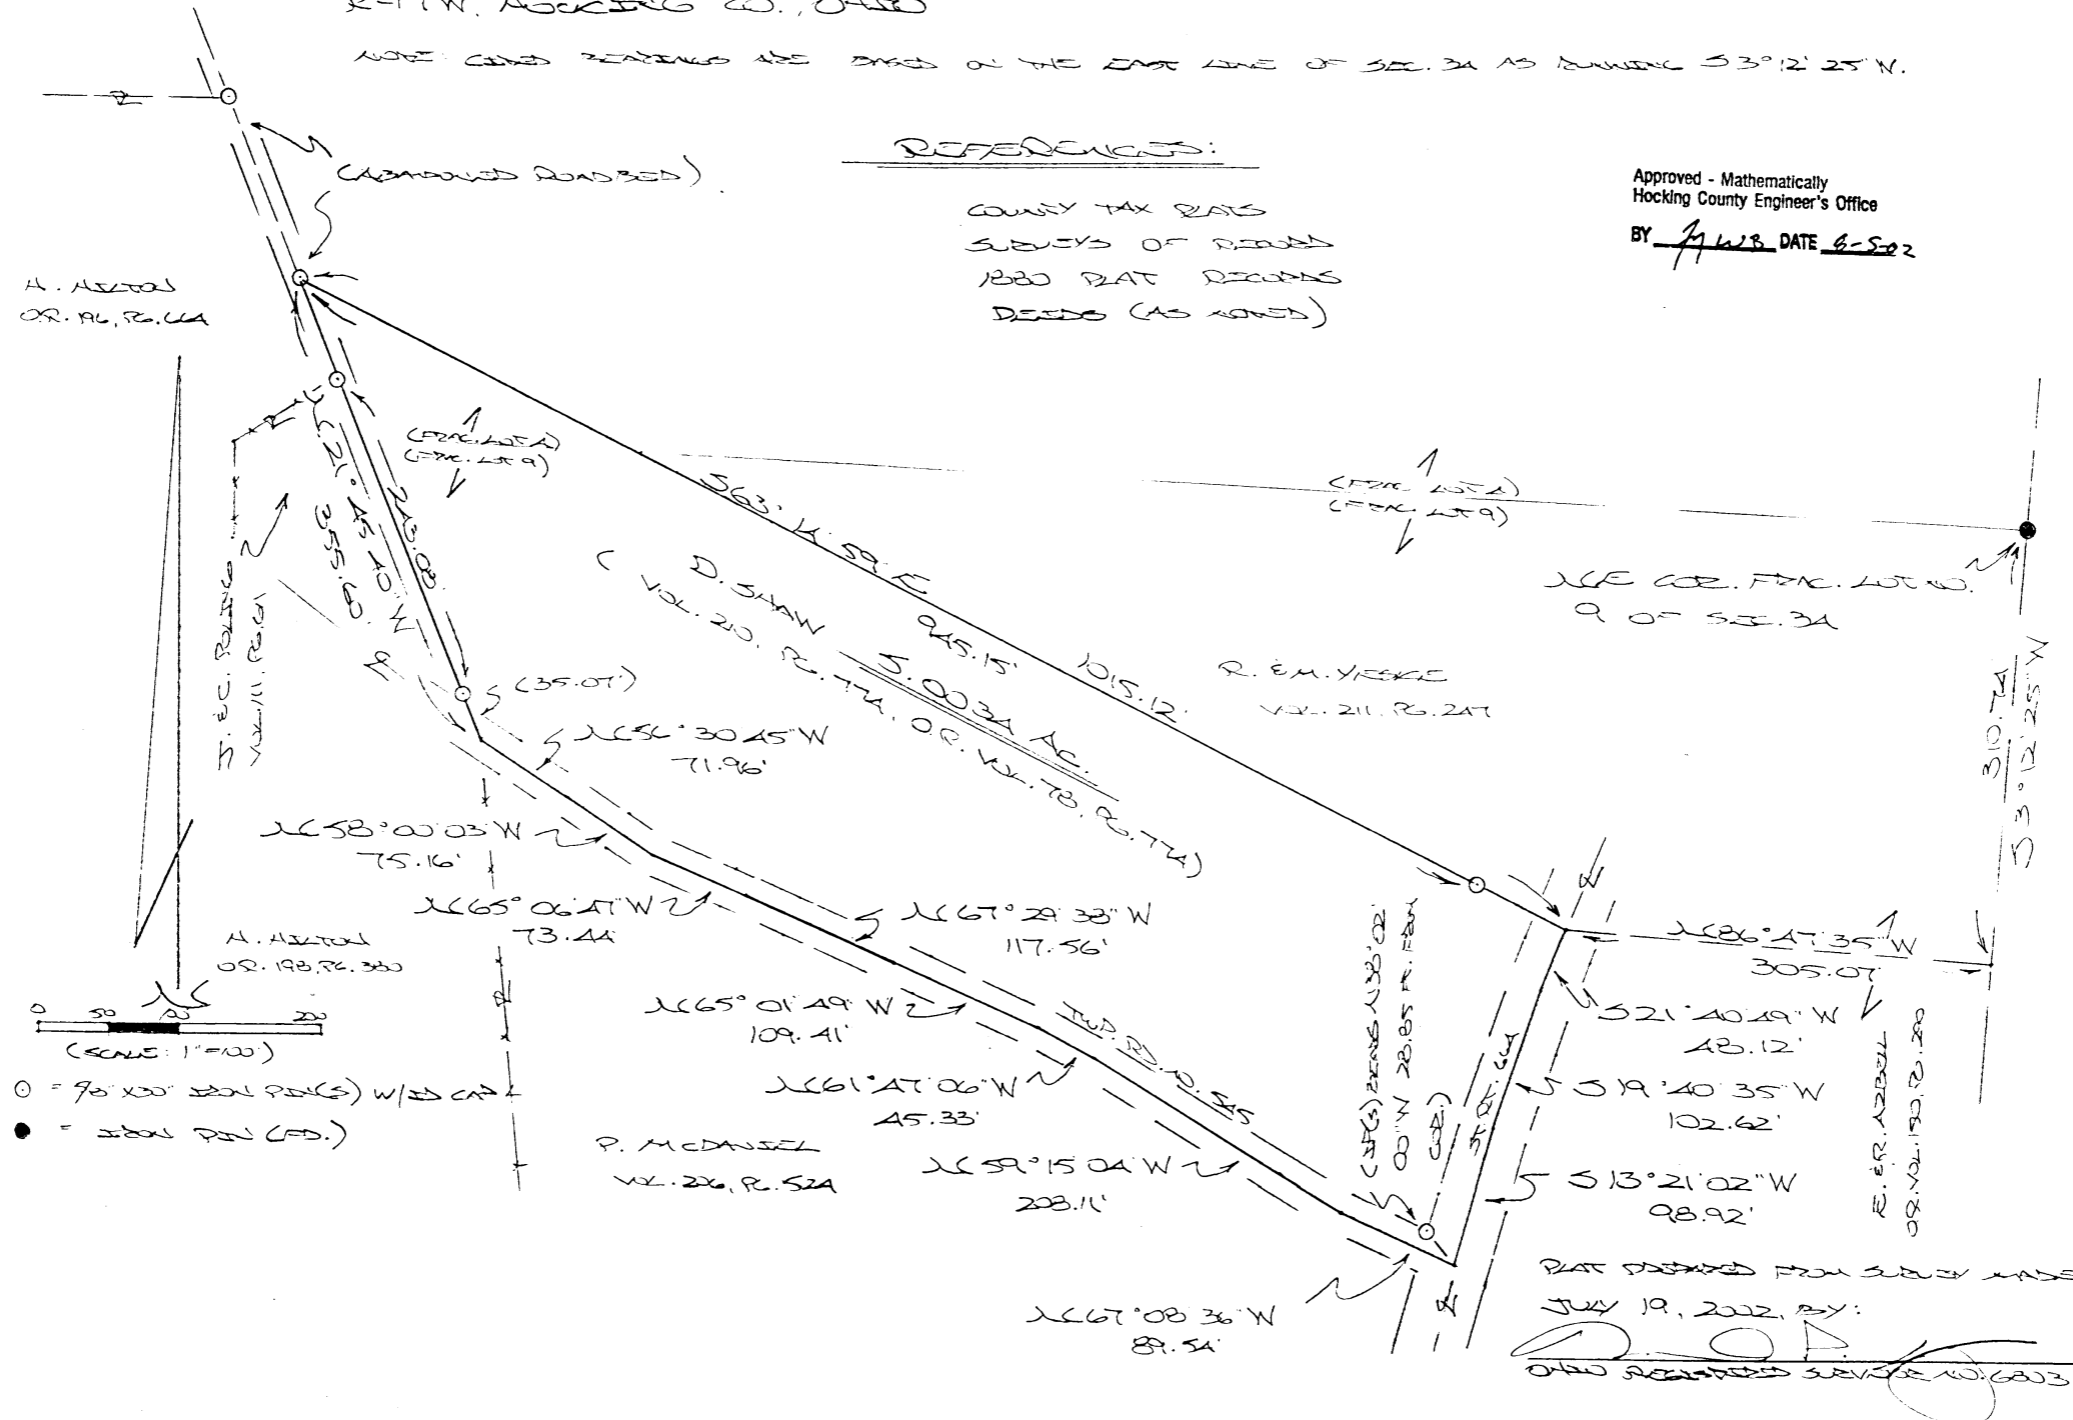 R-17W. HOCKING CO., OHIO
NOTE: CITED BEARINGS ARE BASED ON THE EAST LINE OF SEC. 34 AS RUNNING S 3° 12' 25" W.
REFERENCES:
COUNTY TAX PLATS
SURVEYS OF RECORD
1880 PLAT RECORDS
DEEDS (AS NOTED)
Approved - Mathematically
Hocking County Engineer's Office
BY DATE 8-5-02
(ABANDONED ROADBED)
H. HILTON
O.R. 196, PG. 664
(FRAC. LOT 4)
(FRAC. LOT 9)
(FRAC. LOT 4)
(FRAC. LOT 9)
N 21° 45' 40" W
355.60'
243.08'
S 63° 14' 59" E
945.15'
1015.12'
D. SHAW
(VOL. 210, PG. 774, O.R. VOL. 78, PG. 774)
5.0034 AC.
R. & M. 
VOL. 211, PG. 247
NE COR. FRAC. LOT NO.
9 OF SEC. 34
310.74'
S 3° 12' 25" W
J. & C. POLING
VOL. 111, PG. 
(35.07')
N 56° 30' 45" W
71.96'
N 58° 00' 03" W
75.16'
N 65° 06' 47" W
73.44'
N 67° 29' 38" W
117.56'
N 65° 01' 49" W
109.41'
N 61° 47' 06" W
45.33'
N 59° 15' 04" W
208.11'
N 67° 08' 36" W
89.54'
TWP. RD. NO. 545
(IP(S) BEARS N 38° 02'
00" W 28.85 FT. FROM
COR.)
ST. RT. 664
N 86° 47' 35" W
305.07'
S 21° 40' 49" W
48.12'
S 19° 40' 35" W
102.62'
S 13° 21' 02" W
98.92'
E. & R. 
O.R. VOL. 180, PG. 280
H. HILTON
O.R. 193, PG. 380
N
0 50 100 200
(SCALE: 1"=100')
○ = 5/8" X 30" IRON PIN(S) W/ID CAP
● = IRON PIN (FD.)
P. MCDANIEL
VOL. 226, PG. 524
PLAT PREPARED FROM SURVEY MADE
JULY 19, 2002, BY:
OHIO REGISTERED SURVEYOR NO. 6803